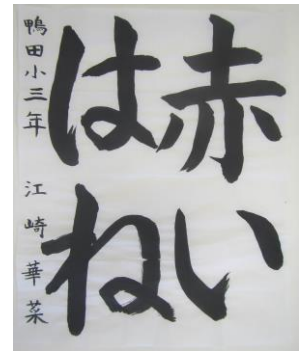 赤い
はね
鴨田小三年 江崎華菜